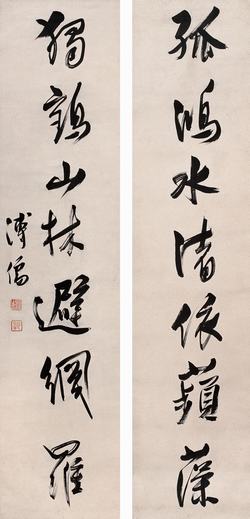 孤鴻水渚依蘋藻
獨鶴山林避網羅
溥儒